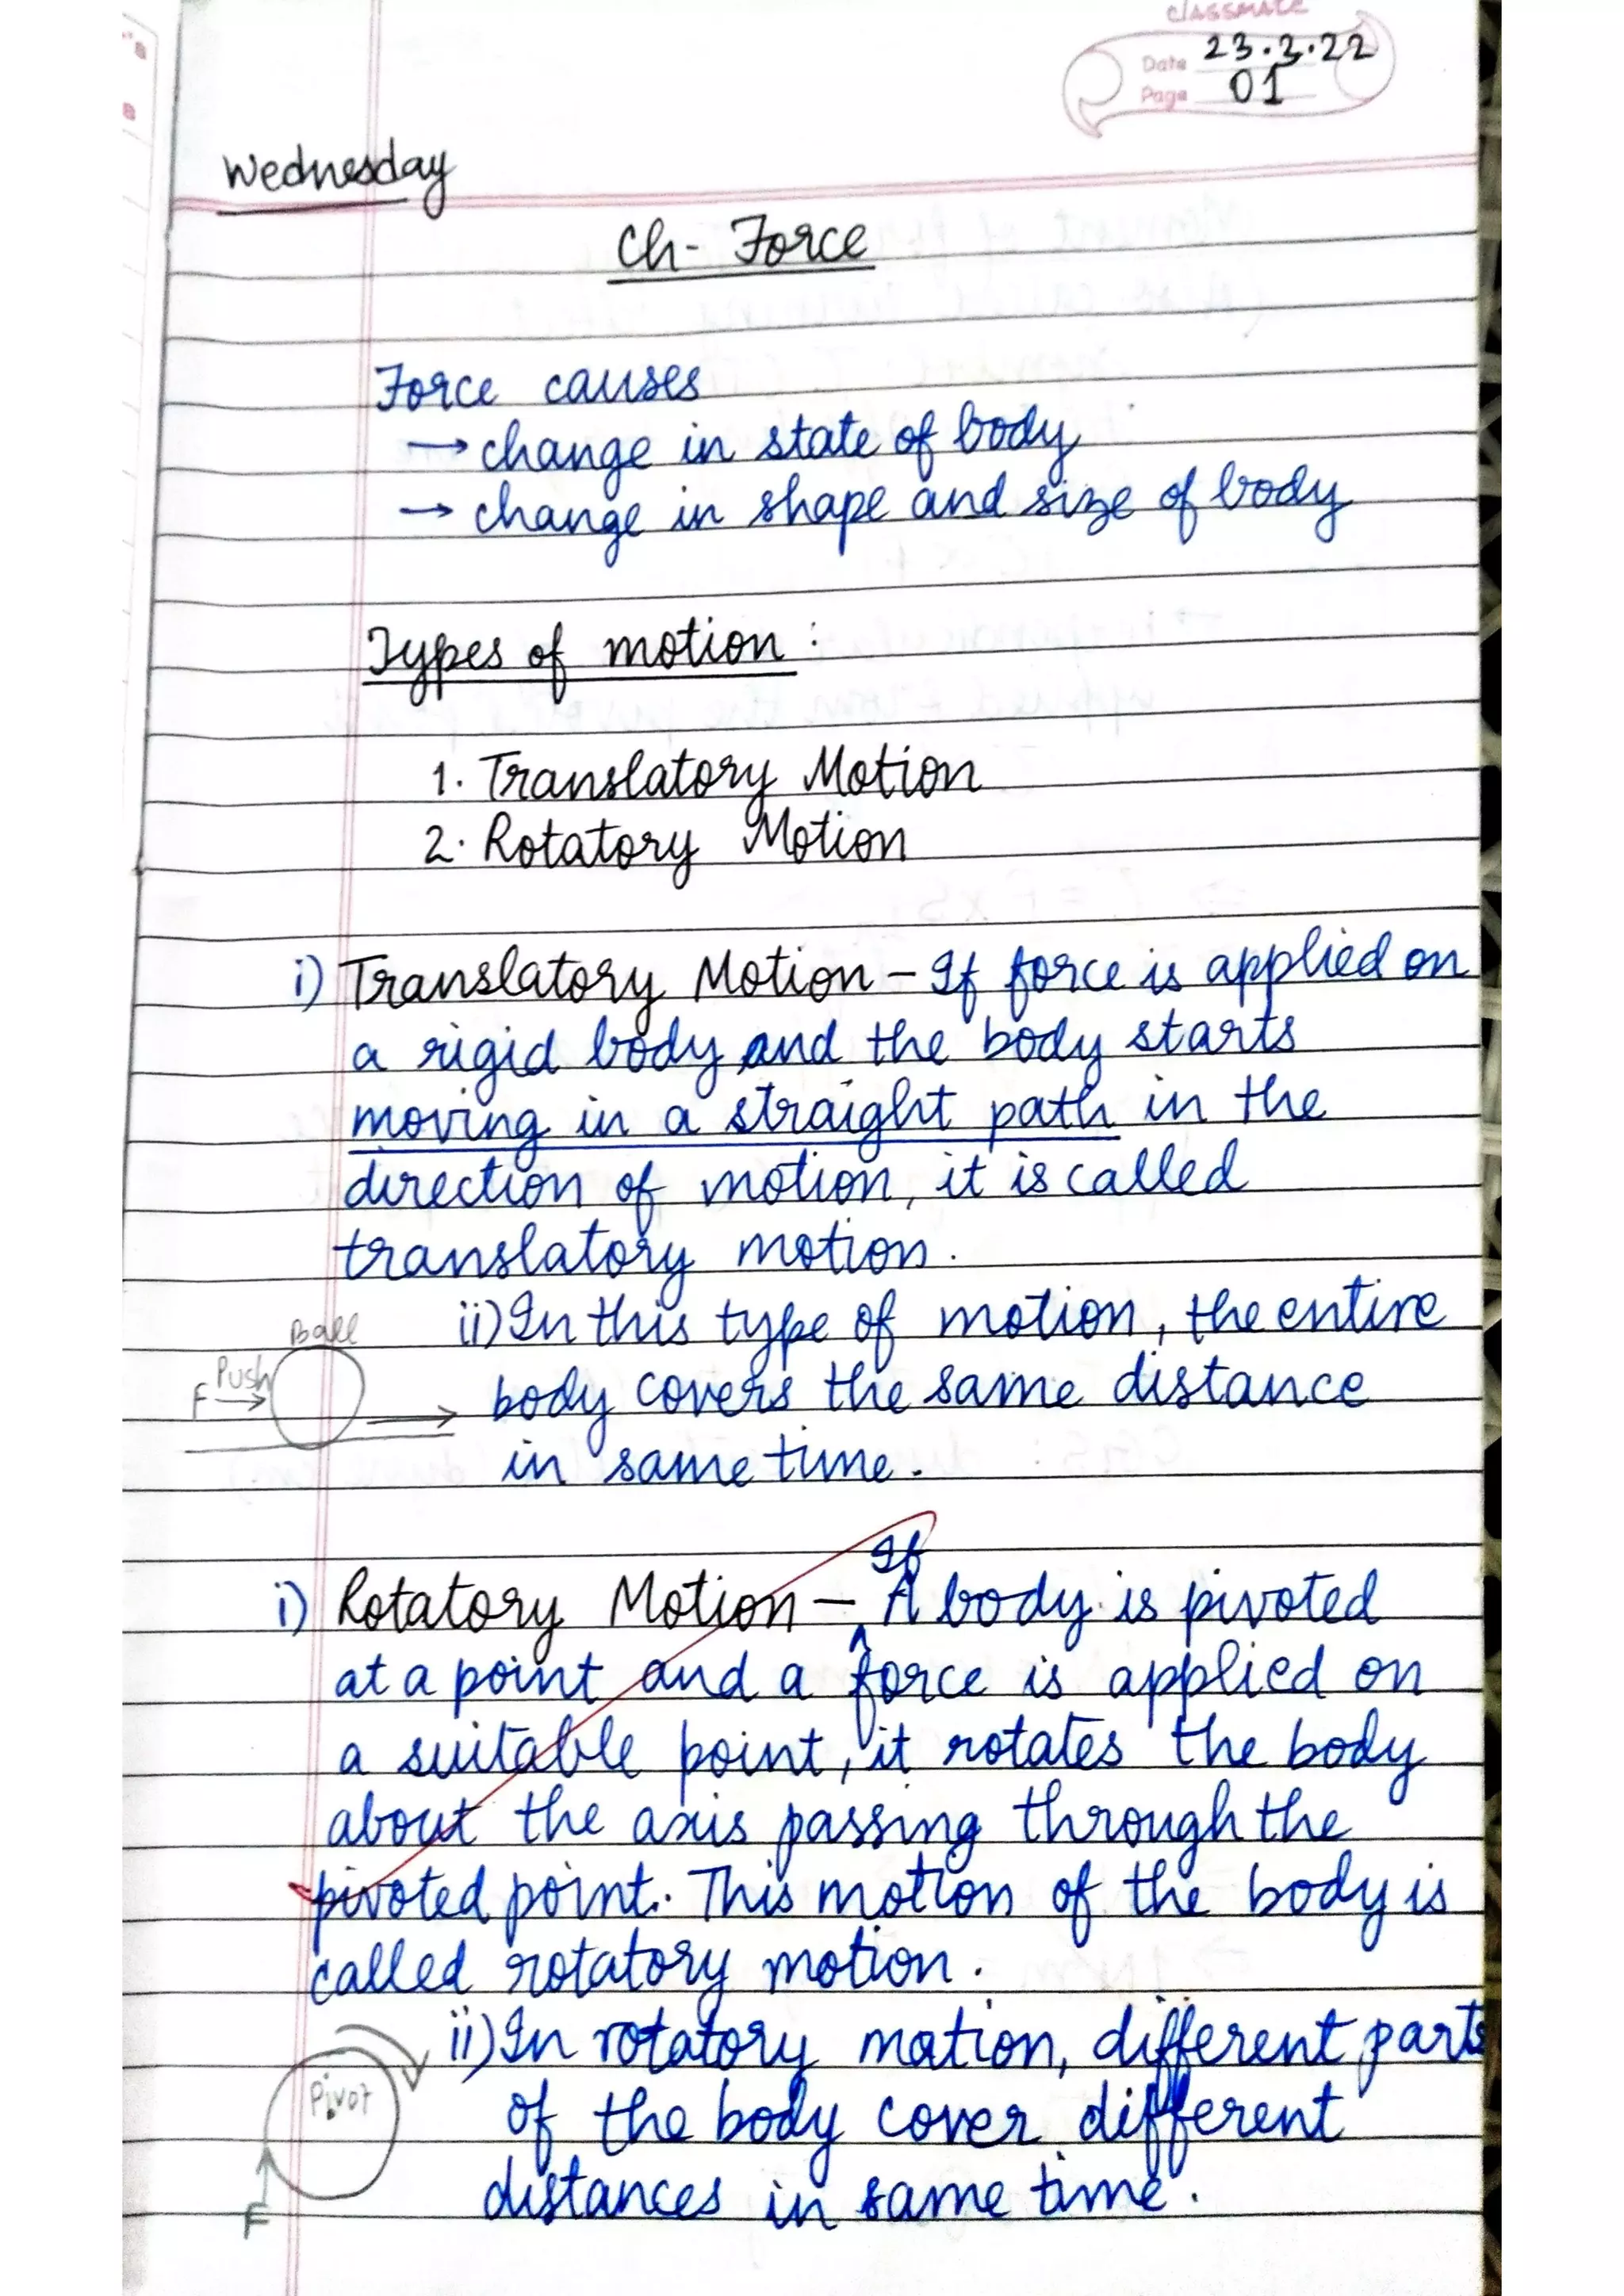 classmate
Date 23.3.22
Page 01
Wednesday
Ch- Force
Force causes
→ change in state of body
→ change in shape and size of body
Types of motion :
1. Translatory Motion
2. Rotatory Motion
i) Translatory Motion - If force is applied on
a rigid body and the body starts
moving in a straight path in the
direction of motion, it is called
translatory motion.
Ball
Push
F →
ii) In this type of motion, the entire
body covers the same distance
in same time.
If
i) Rotatory Motion - A body is pivoted
at a point and a force is applied on
a suitable point, it rotates the body
about the axis passing through the
pivoted point. This motion of the body is
called rotatory motion.
ii) In rotatory motion, different parts
of the body cover different
distances in same time.
Pivot
F